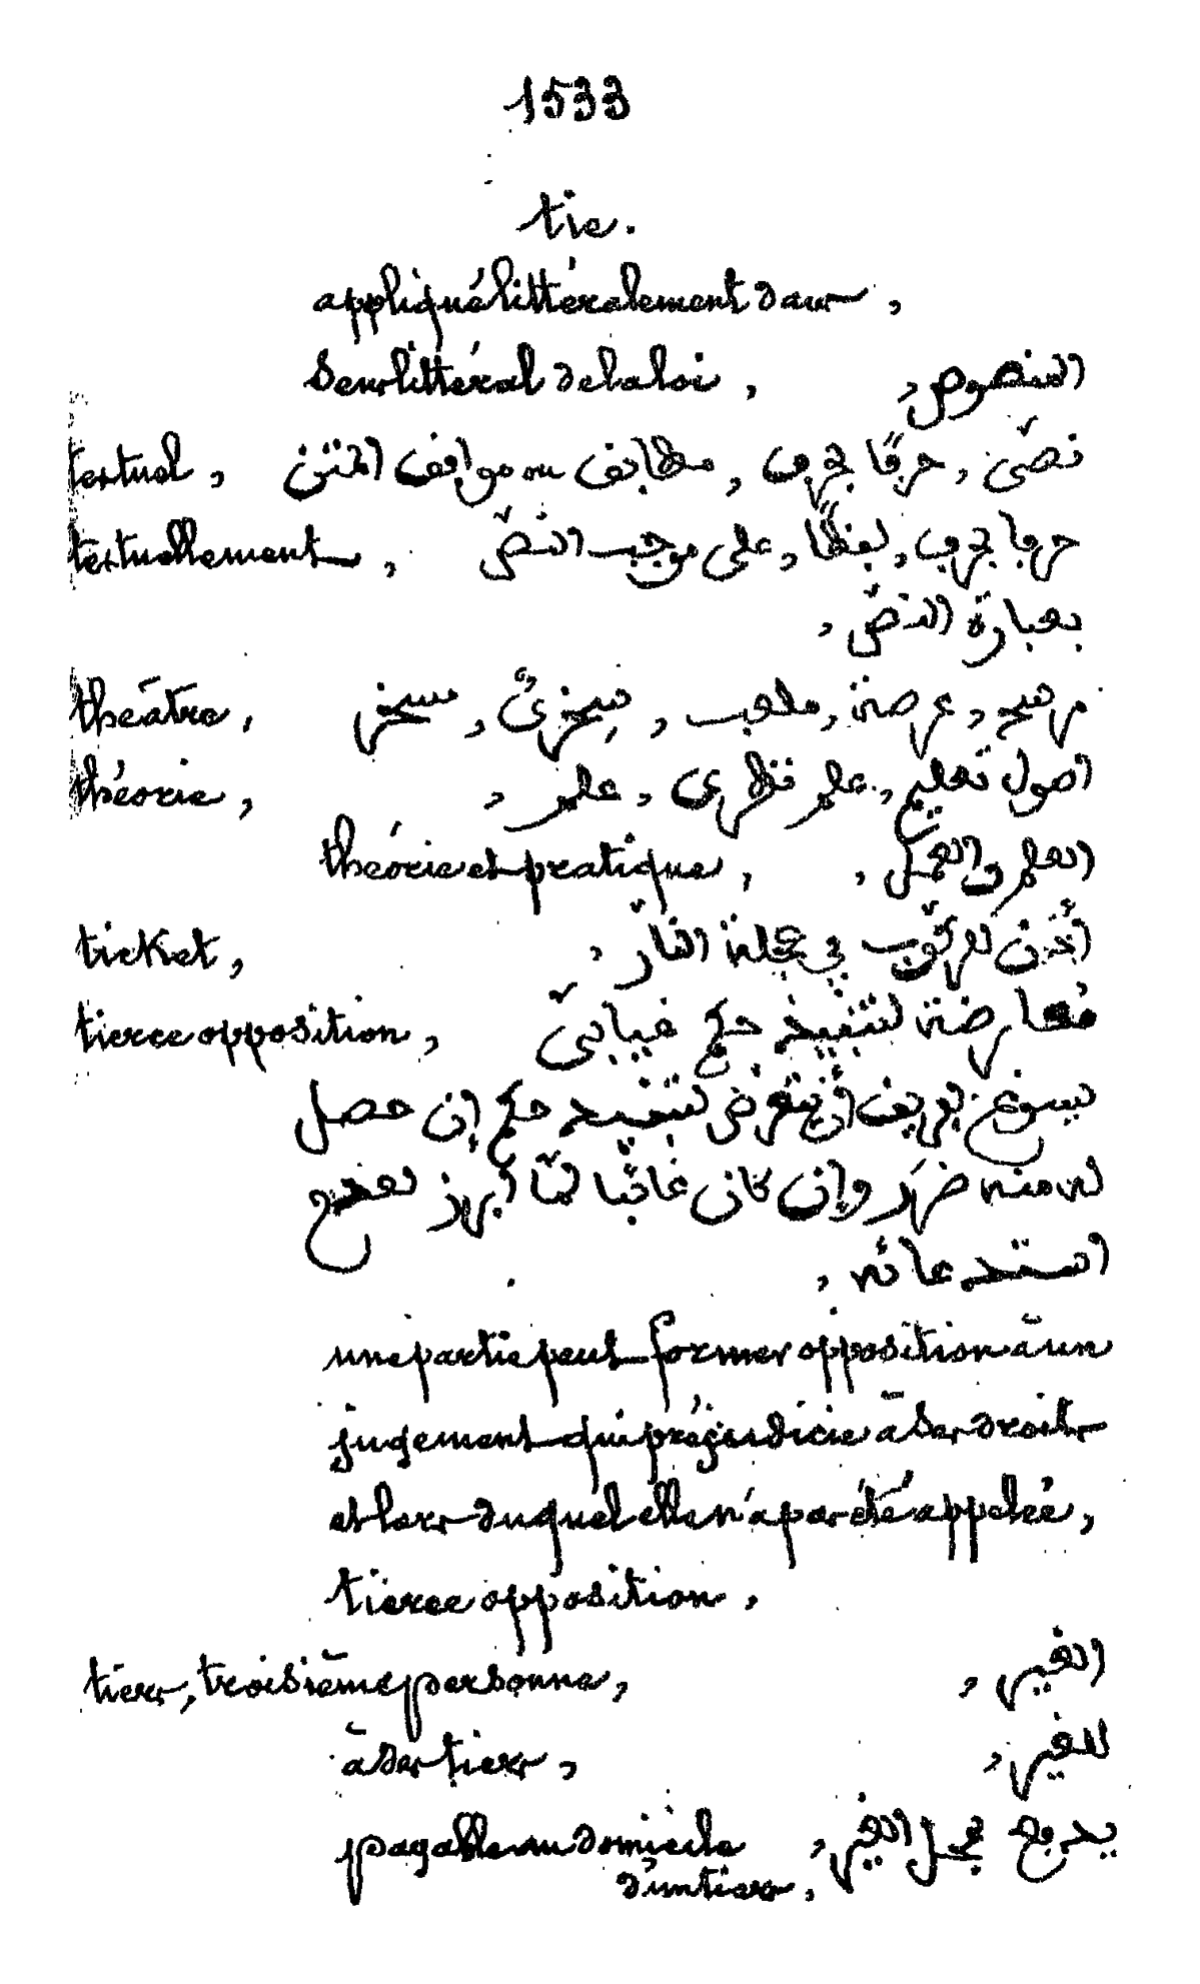 1533
tie.
appliqué littéralement dans,
sens littéral de la loi, النصوص,
textuel, نصّى, حرفًا بحرف, مطابق ou موافق المتن
textuellement, حرفا بحرف, لفظًا, على موجب النصّ
بعبارة النصّ,
théâtre, مرسح, عرصة, ملعب, سخرىّ, مسخر
théorie, اصول تعليم, علم نظرى, علم,
théorie et pratique, العلم والعمل,
ticket, لركوب في عجلة النار,
tierce opposition, معارضة لتنفيذ حكم غيابىّ
يسوغ لفريق أن يتعرّض لتنفيذ حكم إن حصل
له منه ضرر وإن كان غائبا لمّا أبرز لعدم
استدعائه,
une partie peut former opposition à un
jugement qui préjudicie à ses droits
et lors duquel elle n'a pas été appelée,
tierce opposition,
tiers, troisième personne, الغير,
à des tiers, للغير,
payable au domicile يدفع بمحل الغير,
d'un tiers,